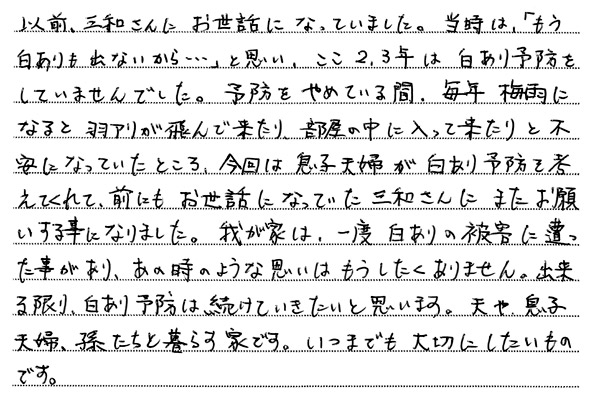 以前、三和さんに お世話に なっていました。当時は、「もう
白ありも 出ないから…」と思い、ここ 2,3年は 白あり予防を
していませんでした。予防を やめている間、毎年 梅雨に
なると 羽アリが飛んで来たり、部屋の中に入って来たりと 不
安になっていたところ、今回は 息子夫婦が 白あり予防を考
えてくれて、前にも お世話になっていた三和さんに またお願
いする事になりました。我が家は、一度 白ありの被害に遭っ
た事があり、あの時のような思いは もうしたくありません。出来
る限り、白あり予防は、続けていきたいと思います。夫や、息子
夫婦、孫たちと暮らす家です。いつまでも 大切にしたいもの
です。